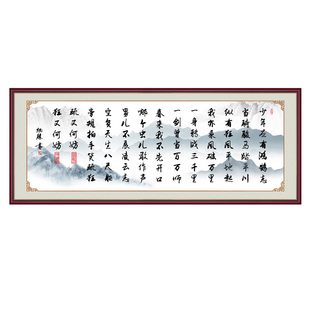 少年应有鸿鹄志
当骑骏马踏平川
似有狂风平地起
我亦乘风破万里
一身转战三千里
一剑曾当百万师
春来我不先开口
哪个虫儿敢作声
男儿不展凌云志
空负天生八尺躯
旁观拍手笑疏狂
疏又何妨
狂又何妨
书